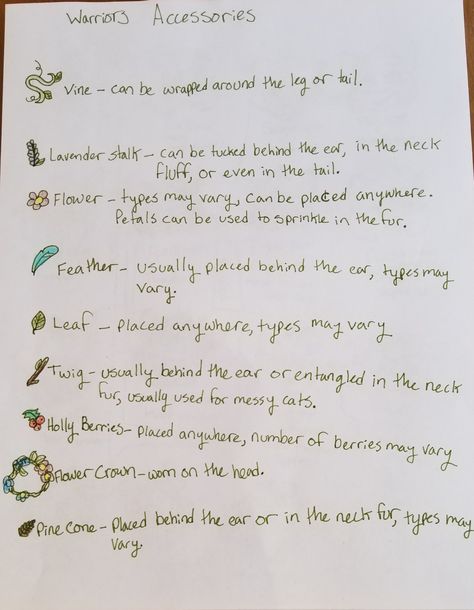 Warriors Accessories
Vine - can be wrapped around the leg or tail.
Lavender stalk - can be tucked behind the ear, in the neck
fluff, or even in the tail.
Flower - types may vary, can be placed anywhere.
Petals can be used to sprinkle in the fur.
Feather - usually placed behind the ear, types may
vary.
Leaf - placed anywhere, types may vary
Twig - usually behind the ear or entangled in the neck
fur, usually used for messy cats.
Holly Berries - placed anywhere, number of berries may vary
Flower Crown - worn on the head.
Pine cone - Placed behind the ear or in the neck fur, types may
vary.